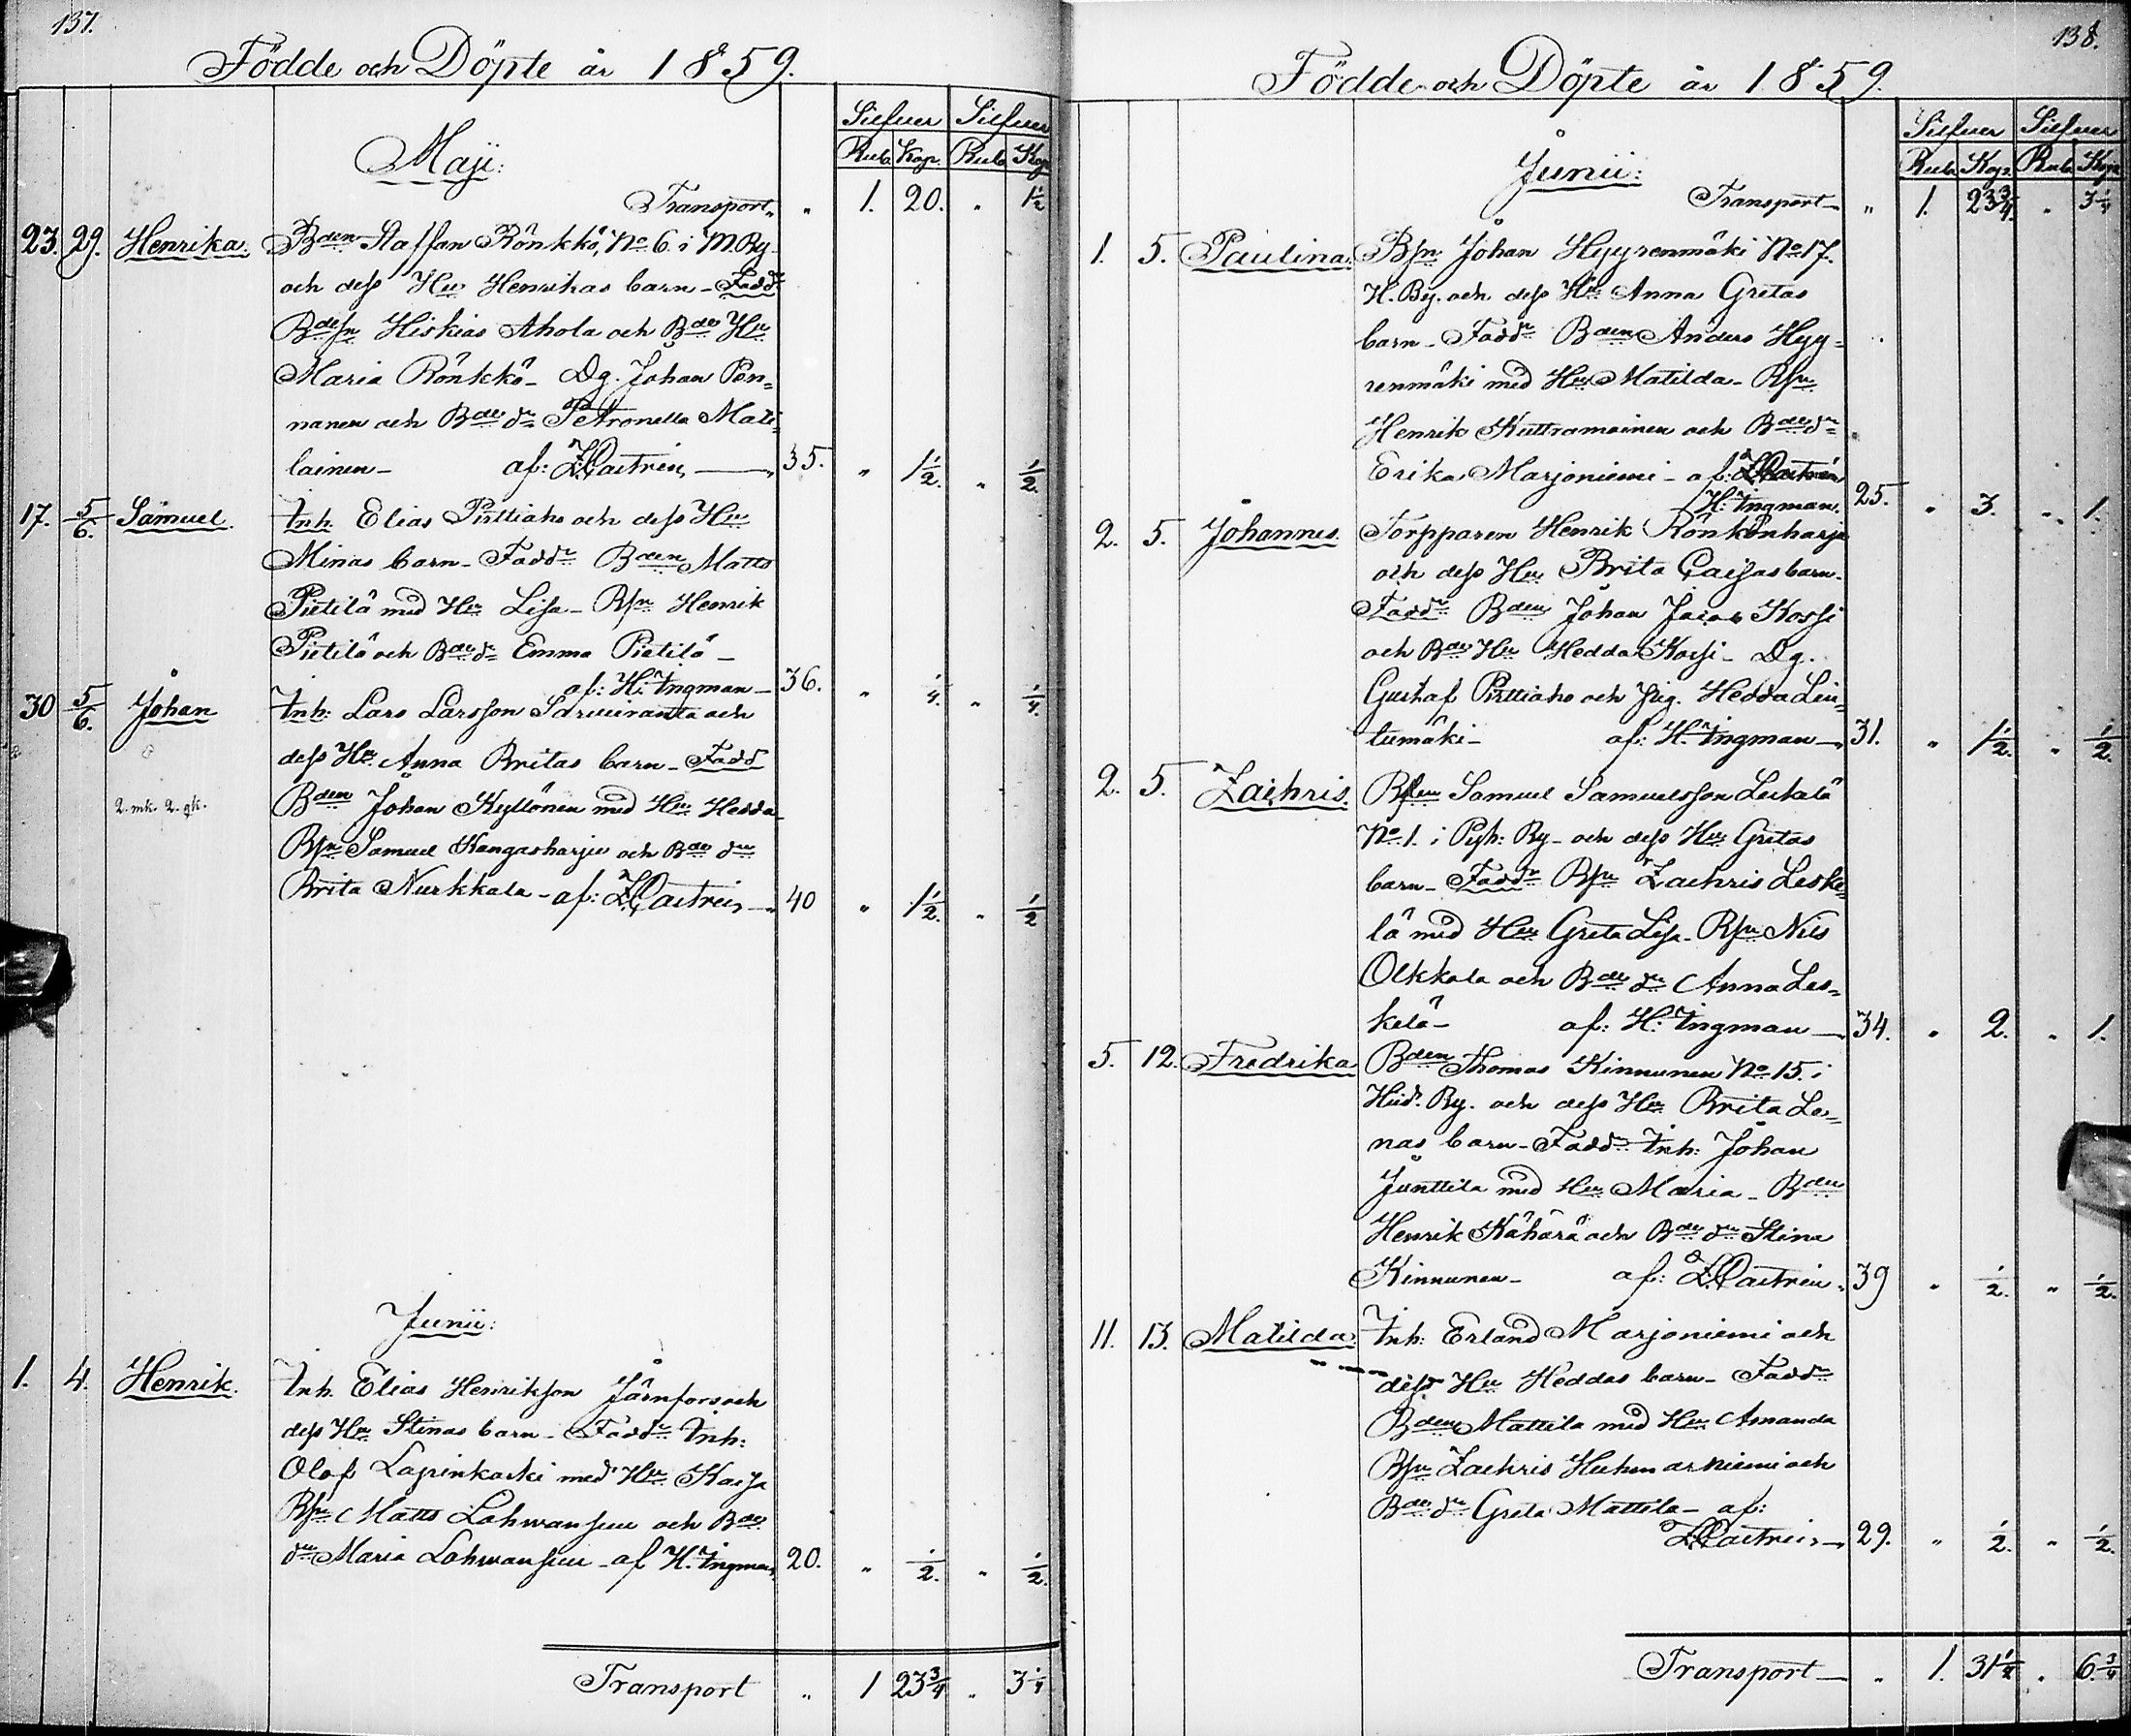 137.
Födde och Döpte år 1859.
Silfver Silfver
Rub. Kop. Rub. Kop.
Maji:
Transport „ 1. 20. „ 1½
23. 29. Henrika. Bden Staffan Rönkkö, No 6. i M. By
och dess Hu Henrikas barn - Fadd
Bdesn Hiskias Ahola och Bde Hu
Maria Rönkkö - Dg. Johan Pen=
nanen och Bde dr Petronella Mati=
lainen - af: Z. Castrén 35. „ 1½. „ ½.
17. 5/6. Samuel. Inh. Elias Pirttiaho och dess Hu
Minas barn - Faddr Bden Matts
Pietilä med Hu Lisa - Bsn Henrik
Pietilä och Bde dr Emma Pietilä -
af: H. Ingman - 36. „ ¼. „ ¼.
30 5/6. Johan Inh: Lars Larsson Särkiranta och
dess Hu. Anna Britas barn - Fadd
2. mk. 2. gk. Bden Johan Kyllönen med Hu Hedda
Bsn Samuel Kangasharju och Bde dr
Brita Nurkkala - af: Z. Castrén 40 „ 1½. „ ½
Junii:
1. 4. Henrik. Inh. Elias Henriksson Järnfors och
dess Hu Stinas barn - Faddr Inh:
Olof Lapinkaski med Hu Kaisa
Bsn Matts Lahwansuu och Bde
dr Maria Lahwansuu - af H. Ingman 20. „ ½. „ ½.
Transport „ 1 23¾ „ 3¼
138.
Födde och Döpte år 1859.
Silfver Silfver
Rub. Kop. Rub. Kop.
Junii:
Transport „ 1. 23¾ „ 3¼
1. 5. Paulina. Bsn Johan Hyyrenmäki No 17.
H. By. och dess Hu Anna Gretas
barn - Faddr Bden Anders Hyy=
renmäki med Hu Matilda - Bsn
Henrik Kuttramoinen och Bde dr
Erika Marjoniemi - af: Z. Castrén
H. Ingman. 25. „ 3. „ 1.
2. 5. Johannes. Torpparen Henrik Rönkönharju
och dess Hu Brita Caisas barn.
Faddr Bden Johan Jacob Kossi
och Bde Hu Hedda Kossi - Dg.
Gustaf Pirttiaho och Pig. Hedda Lin=
tumäki - af: H. Ingman 31. „ 1½. „ ½.
2. 5. Zachris. Bsen Samuel Samuelsson Leskelä
No 1. i Pyh: By - och dess Hu Gretas
barn - Faddr Bsn Zachris Leske=
lä med Hu Greta Lisa - Bsn Nils
Olkkola och Bde dr Anna Les=
kelä - af: H. Ingman 34. „ 2. „ 1.
5. 12. Fredrika Bden Thomas Kinnunen No 15. i
Hud. By. och dess Hu Brita Le=
nas barn - Faddr Inh: Johan
Junttila med Hu Maria - Bden
Henrik Kähärä och Bde dr Stina
Kinnunen - af: Z. Castrén. 39 „ ½. „ ½.
11. 13. Matilda. Inh: Erland Marjoniemi och
dess Hu Heddas barn - Faddr
Bden Mattila med Hu Amanda
Bsn Zachris Huhmarniemi och
Bde dr Greta Mattila - af:
Z. Castrén 29. „ ½. „ ½.
Transport „ 1. 31½ „ 6¾